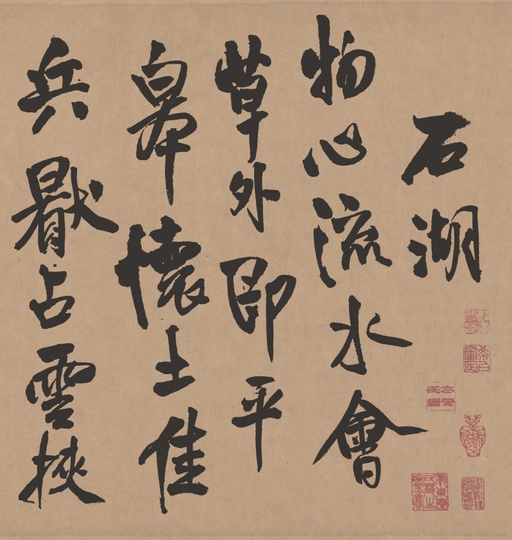 石湖
物心流水會
草外即平
皋懷土佳
兵猒占雲挾